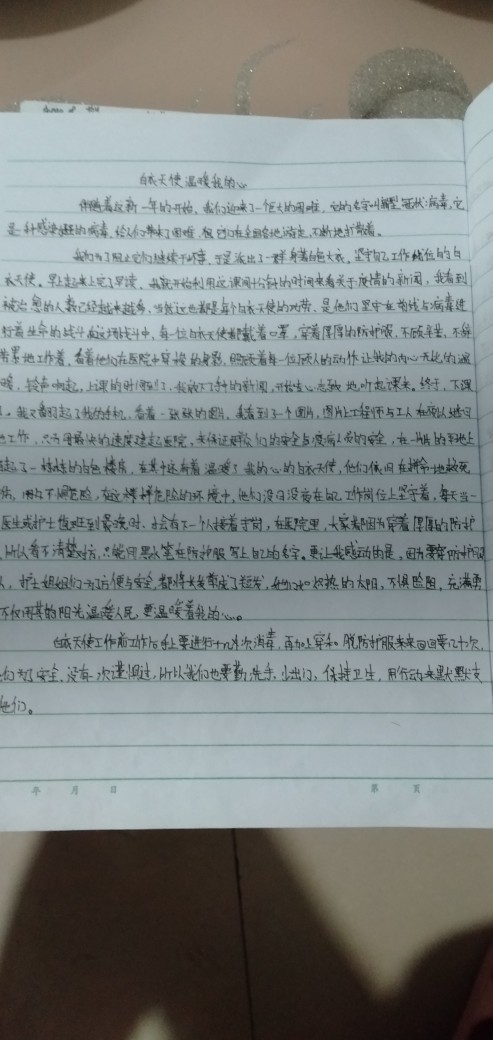 白衣天使温暖我的心
伴随着这新一年的开始，我们迎来了一个巨大的困难，它的名字叫新型冠状病毒，它
是一种感染 的病毒，给人们带来了困难，
我们为了阻止它们继续干坏事，于是派出了一群身着白色大衣，坚守自己工作岗位的白
衣天使。早上起来上完了早读，我就开始利用这课间十分钟的时间来看关于疫情的新闻，我看到
被治愈的人数已经越来越多，当然这也都是每个白衣天使的功劳，是他们坚守在前线与病毒进
行着生命的战斗。在这场战斗中，每一位白衣天使都戴着口罩，穿着厚厚的防护服，不顾辛苦、不顾
劳累地工作着。看着他们在医院中穿梭的身影，照顾着每一位病人的动作让我的内心无比的温
暖，铃声响起，上课的时间到了，我放下了手中的新闻，开始专心 地听起课来。终于，下课
，我又看起了我的手机，看着一张张的图片，看到了一个图片，图片上工程师与工人在
地工作，只为用最快的速度建起医院，来保证群众们的安全与病人们的安全，在一片片的平地上
起了一栋栋的白色楼房，在其中还有着温暖了我的心的白衣天使，他们依旧在拼命地救死
伤，用 不惧危险，在这样危险的环境中，他们没日没夜在自己工作岗位上坚守着，每当一
医生或护士值班到最晚时，才会有下一个人接着守岗，在医院里，大家都因为穿着厚厚的防护
，所以看不清楚对方，只能用黑水笔在防护服写上自己的名字。更让我感动的是，因为要穿防护服
，护士姐姐们为了方便与安全，都将长发剪成了短发，她们如炽热的太阳，不惧险阻，充满勇
不仅用其的阳光温暖人民，更温暖着我的心。
白衣天使工作前工作后手上要进行十几次消毒，再加上穿和脱防护服来来回回要几十次，
们为了安全，没有一次 过，所以我们也要勤洗手，少出门，保持卫生，用行动来默默支
他们。
年 月 日 第 页